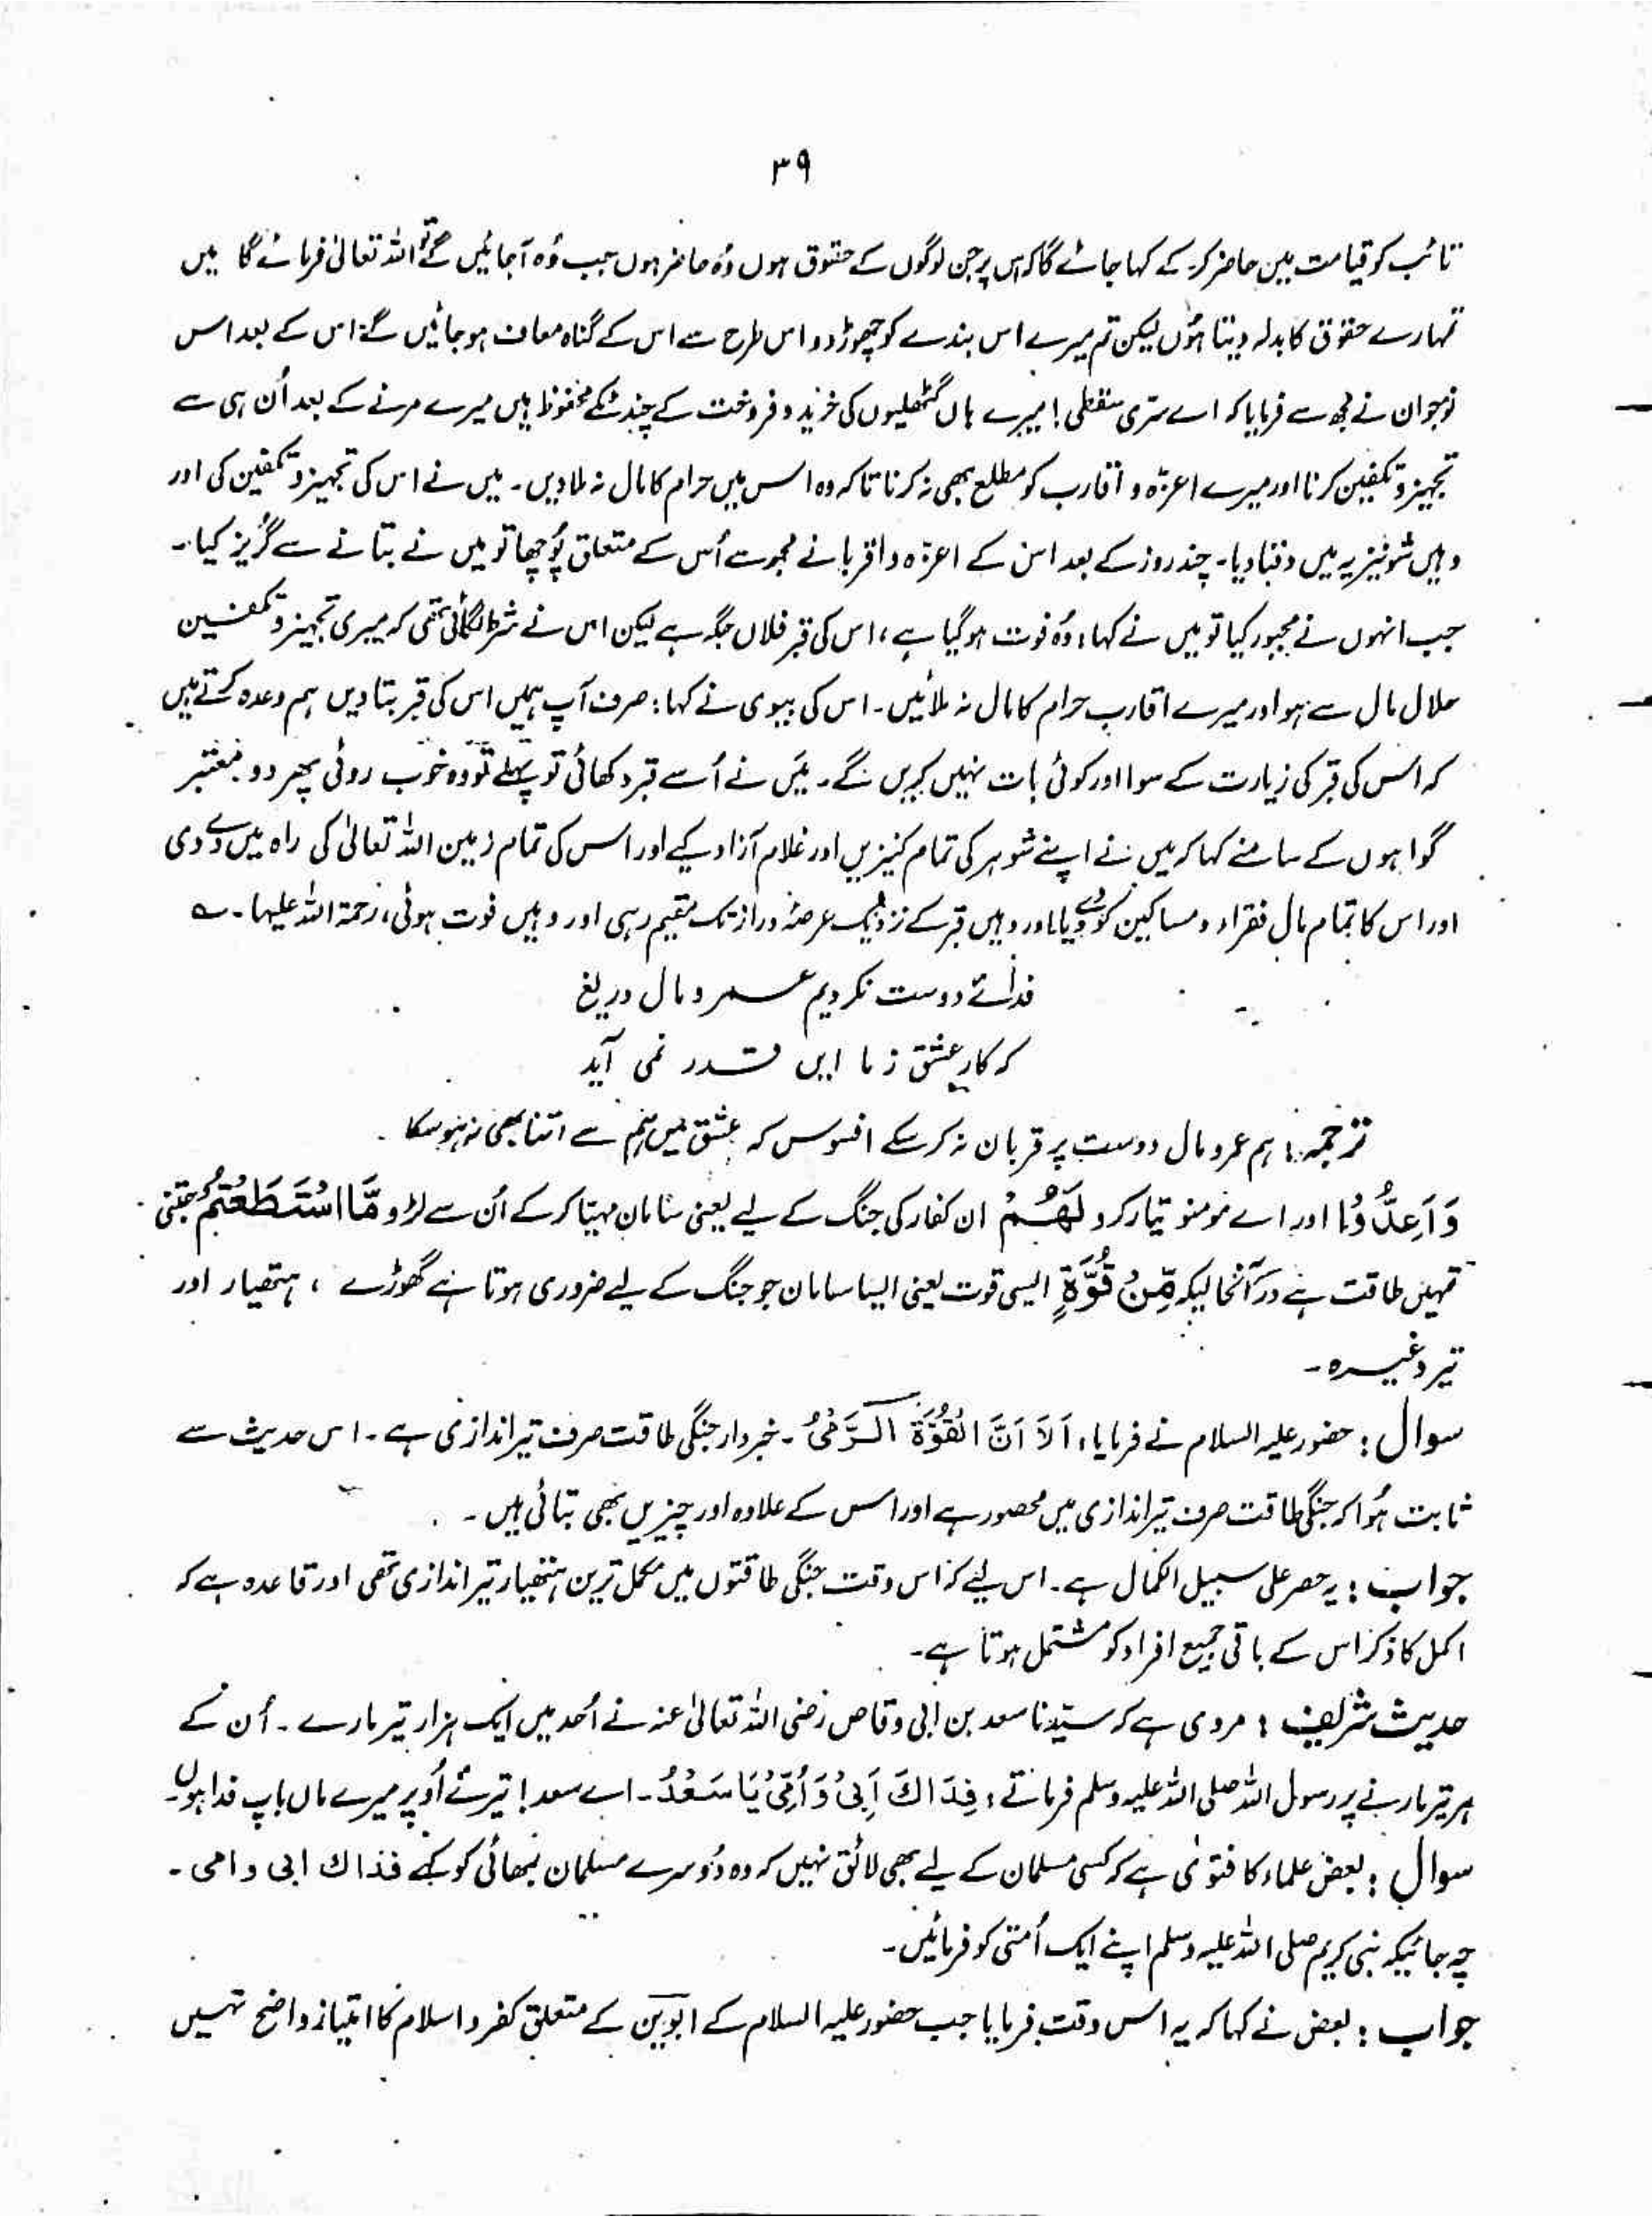 ۳۹
تائب کو قیامت میں حاضر کر کے کہا جائے گا کہ اس پر جن لوگوں کے حقوق ہوں وُہ حاضر ہوں جب وُہ آجائیں گے تو اللہ تعالیٰ فرمائے گا میں
تمہارے حقوق کا بدلہ دیتا ہُوں لیکن تم میرے اس بندے کو چھوڑ دو اس طرح سے اس کے گناہ معاف ہو جائیں گے؛ اس کے بعد اس
نوجوان نے مجھ سے فرمایا کہ اے سرّی سقطی! میرے ہاں گٹھلیوں کی خرید و فروخت کے چند ٹکے محفوظ ہیں میرے مرنے کے بعد اُن ہی سے
تجہیز و تکفین کرنا اور میرے اعزّہ و اقارب کو مطلع بھی نہ کرنا تاکہ وہ اس میں حرام کا مال نہ ملا دیں۔ میں نے اس کی تجہیز و تکفین کی اور
وہیں شونیزیہ میں دفنا دیا۔ چند روز کے بعد اس کے اعزّہ و اقربا نے مجھ سے اُس کے متعلق پُوچھا تو میں نے بتانے سے گریز کیا۔
جب انہوں نے مجبور کیا تو میں نے کہا: وُہ فوت ہو گیا ہے، اس کی قبر فلاں جگہ ہے لیکن اس نے شرط لگائی تھی کہ میری تجہیز و تکفین
حلال مال سے ہو اور میرے اقارب حرام کا مال نہ ملائیں۔ اس کی بیوی نے کہا: صرف آپ ہمیں اس کی قبر بتا دیں ہم وعدہ کرتے ہیں
کہ اُس کی قبر کی زیارت کے سوا اور کوئی بات نہیں کریں گے۔ میَں نے اُسے قبر دکھائی تو پہلے تو وہ خوب روئی پھر دو معتبر
گواہوں کے سامنے کہا کہ میں نے اپنے شوہر کی تمام کنیزیں اور غلام آزاد کیے اور اس کی تمام زمین اللہ تعالیٰ کی راہ میں دے دی
اور اس کا تمام مال فقراء و مساکین کو دے دیا اور وہیں قبر کے نزدیک عرصۂ دراز تک مقیم رہی اور وہیں فوت ہوئی، رحمۃ اللہ علیہا۔ ؎
فدائے دوست نکردیم عمر و مال دریغ
کہ کارِ عشق ز ما ایں قدر نمی آید
ترجمہ: ہم عمر و مال دوست پر قربان نہ کر سکے افسوس کہ عشق میں ہم سے اتنا بھی نہ ہو سکا۔
وَ اَعِدُّوْا اور اے مومنو تیار کرو لَهُمْ ان کفار کی جنگ کے لیے یعنی سامان مہیّا کر کے اُن سے لڑو مَّا اسْتَطَعْتُمْ جتنی
تمہیں طاقت ہے درآنحالیکہ مِّنْ قُوَّةٍ ایسی قوت یعنی ایسا سامان جو جنگ کے لیے ضروری ہوتا ہے گھوڑے، ہتھیار اور
تیر وغیرہ۔
سوال: حضور علیہ السلام نے فرمایا: اَلَا اَنَّ الْقُوَّةَ الرَّمْیُ۔ خبردار جنگی طاقت صرف تیر اندازی ہے۔ اس حدیث سے
ثابت ہُوا کہ جنگی طاقت صرف تیر اندازی میں محصور ہے اور اس کے علاوہ اور چیزیں بھی بتائی ہیں۔
جواب: یہ حصر علی سبیل الکمال ہے۔ اس لیے کہ اس وقت جنگی طاقتوں میں مکمل ترین ہتھیار تیر اندازی تھی اور قاعدہ ہے کہ
اکمل کا ذکر اس کے باقی جمیع افراد کو مشتمل ہوتا ہے۔
حدیث شریف: مروی ہے کہ سیّدنا سعد بن ابی وقاص رضی اللہ تعالیٰ عنہ نے اُحد میں ایک ہزار تیر مارے۔ اُن کے
ہر تیر مارنے پر رسول اللہ صلی اللہ علیہ وسلم فرماتے: فِدَاكَ اَبِیْ وَ اُمِّیْ یَا سَعْدُ۔ اے سعد! تیرے اُوپر میرے ماں باپ فدا ہوں۔
سوال: بعض علماء کا فتویٰ ہے کہ کسی مسلمان کے لیے بھی لائق نہیں کہ وہ دُوسرے مسلمان بھائی کو کہے فداك ابی و امی۔
چہ جائیکہ نبی کریم صلی اللہ علیہ وسلم اپنے ایک اُمتی کو فرمائیں۔
جواب: بعض نے کہا کہ یہ اس وقت فرمایا جب حضور علیہ السلام کے ابوین کے متعلق کفر و اسلام کا امتیاز واضح نہیں